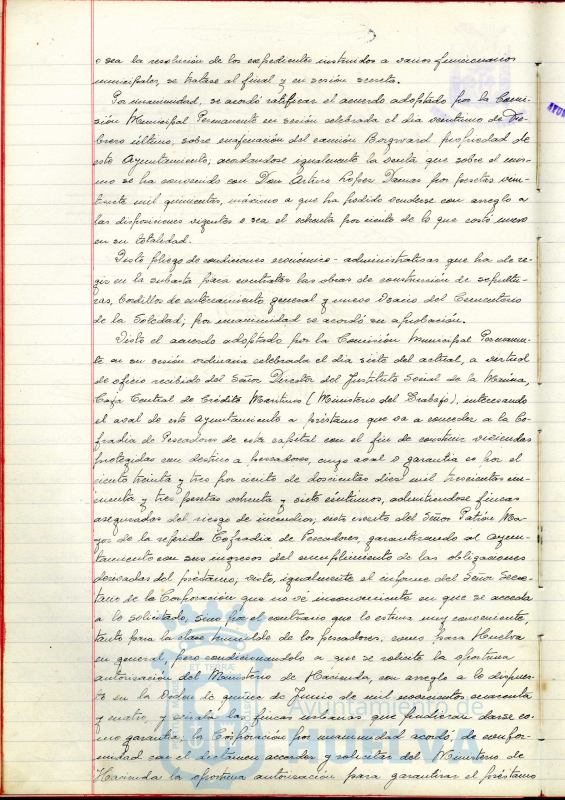 o sea la resolución de los expedientes instruidos a varios funcionarios
municipales, se tratase al final y en sesión secreta.
Por unanimidad, se acordó ratificar el acuerdo adoptado por la Comi-
sión Municipal Permanente en sesión celebrada el día veintiuno de Fe-
brero último, sobre enajenación del camión Borgward propiedad de
este Ayuntamiento, acordandose igualmente la venta que sobre el mis-
mo se ha convenido con Don Arturo Lopez Damas por pesetas vein-
te mil quinientas, máximo a que ha podido venderse con arreglo a
las disposiciones vigentes o sea el ochenta por ciento de lo que costó nuevo
en su totalidad.
Visto pliego de condiciones económico-administrativas que ha de re-
gir en la subasta para contratar las obras de construcción de sepultu-
ras, bordillos de enterramiento general y nuevo Osario del Cementerio
de la Soledad; por unanimidad se acordó su aprobación.
Visto el acuerdo adoptado por la Comisión Municipal Permanen-
te en su sesión ordinaria celebrada el día siete del actual, a virtud
de oficio recibido del Señor Director del Instituto Social de la Marina,
Caja Central de Crédito Maritimo (Ministerio del Trabajo), interesando
el aval de este Ayuntamiento a préstamo que va a conceder a la Co-
fradia de Pescadores de esta capital con el fin de construir viviendas
protegidas con destino a pescadores, cuyo aval o garantia es por el
ciento treinta y tres por ciento de doscientas diez mil trescientas cin-
cuenta y tres pesetas ochenta y siete céntimos, admitiendose fincas
aseguradas del riesgo de incendios; visto escrito del Señor Patrón Ma-
yor de la referida Cofradia de Pescadores, garantizando al Ayun-
tamiento con sus ingresos del cumplimiento de las obligaciones
derivadas del préstamo, visto, igualmente el informe del Señor Secre-
tario de la Corporación que no vé inconveniente en que se acceda
a lo solicitado, sino por el contrario que lo estima muy conveniente,
tanto para la clase humilde de los pescadores, como para Huelva
en general, pero condicionandolo a que se solicite la oportuna
autorización del Ministerio de Hacienda, con arreglo a lo dispues-
to en la Orden de quince de Junio de mil novecientos cuarenta
y cuatro, y señala las fincas urbanas que pudieran darse co-
mo garantia, la Corporación, por unanimidad acordó, de confor-
midad con el dictamen acceder y solicitar del Ministerio de
Hacienda la oportuna autorización para garantizar el préstamo
Ayuntamiento de
HUELVA